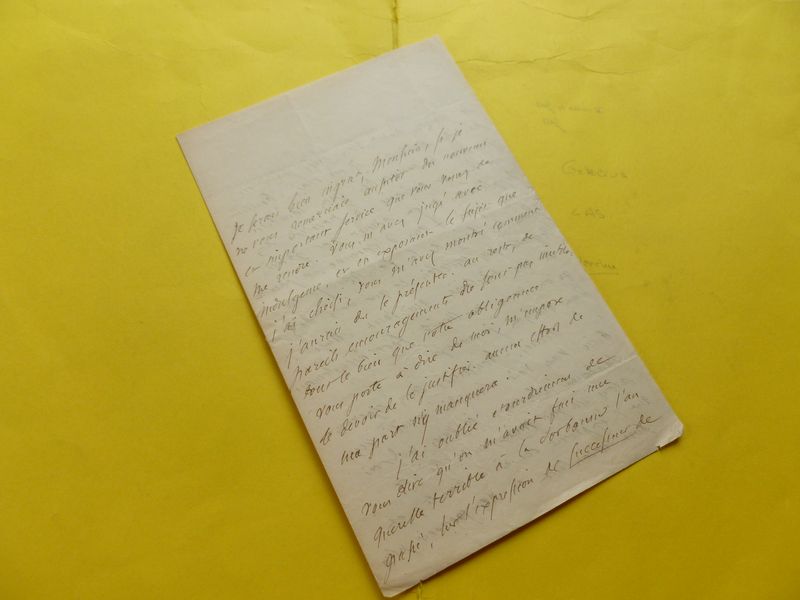 Je serais bien ingrat, Monsieur, si je
ne vous remerciais aupitôt du nouveau
et important service que vous venez de
me rendre. Vous m'avez jugé avec
indulgence, et en exposant le sujet que
j'ai choisi, vous m'avez montré comment
j'aurais dû le présenter. au reste, de
pareils encouragements ne sont pas inutiles.
tout le bien que votre obligeance
vous porte à dire de moi, m'impose
le devoir de le justifier. aucun effort de
ma part n'y manquera.
j'ai oublié l'autre de
vous dire qu'on m'avait fait une
querelle terrible à la Sorbonne l'an
passé, sur l'expression de successeur de
CAS